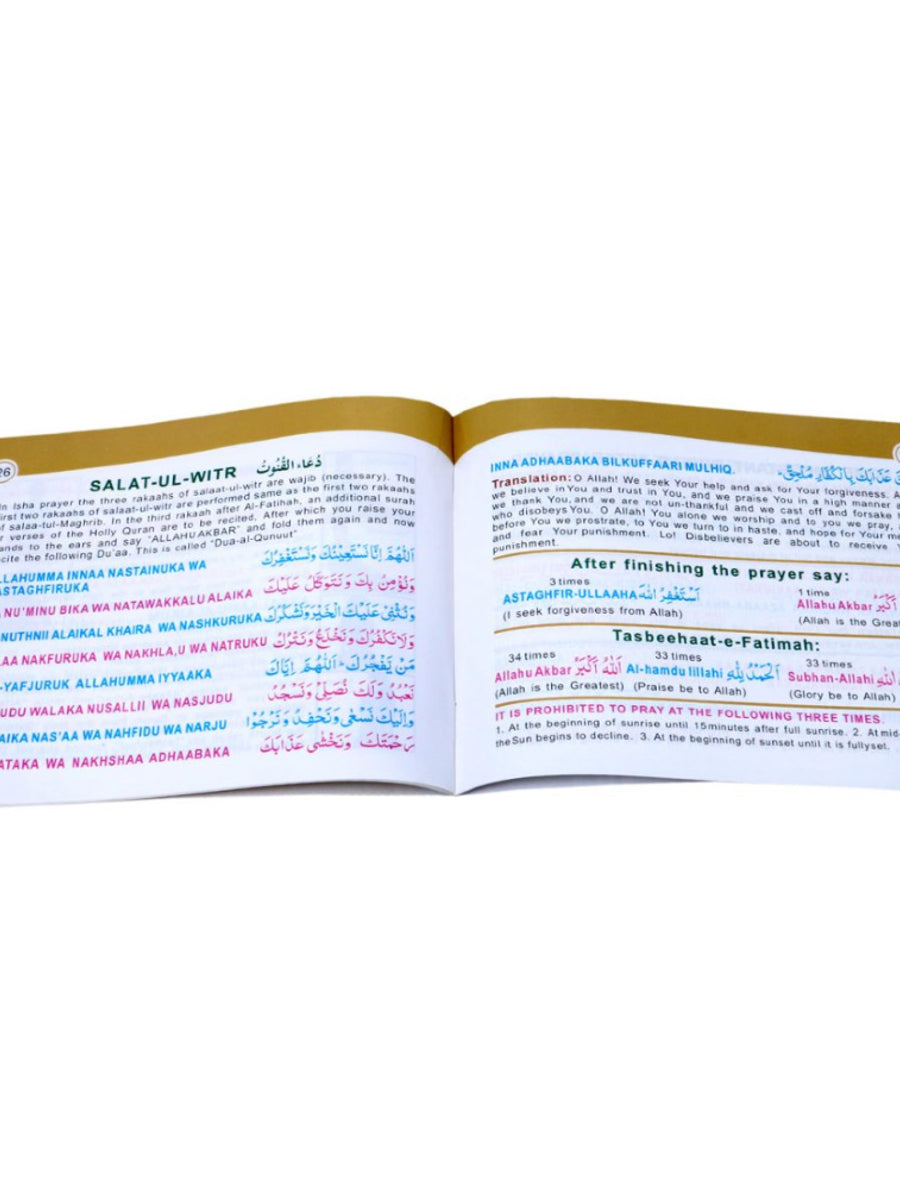 26
SALAT-UL-WITR دُعَاءُ القُنُوتُ
In Isha prayer the three rakaahs of salaat-ul-witr are wajib (necessary). The
first two rakaahs of salaat-ul-witr are performed same as the first two rakaahs
of salaa-tul-Maghrib. In the third rakaah after Al-Fatihah, an additional surah
verses of the Holly Quran are to be recited, After which you raise your
ands to the ears and say "ALLAHU AKBAR" and fold them again and now
cite the following Du'aa. This is called "Dua-al-Qunuut"
LLAHUMMA INNAA NASTAINUKA WA
ASTAGHFIRUKA
اَللّٰهُمَّ اِنَّا نَسْتَعِيْنُكَ وَنَسْتَغْفِرُكَ
A NU'MINU BIKA WA NATAWAKKALU ALAIKA وَنُؤْمِنُ بِكَ وَنَتَوَكَّلُ عَلَيْكَ
NUTHNII ALAIKAL KHAIRA WA NASHKURUKA وَنُثْنِيْ عَلَيْكَ الْخَيْرَ وَنَشْكُرُكَ
LAA NAKFURUKA WA NAKHLA,U WA NATRUKU وَلَا نَكْفُرُكَ وَنَخْلَعُ وَنَتْرُكُ
-YAFJURUK ALLAHUMMA IYYAAKA مَنْ يَّفْجُرُكَ اَللّٰهُمَّ اِيَّاكَ
UDU WALAKA NUSALLII WA NASJUDU نَعْبُدُ وَلَكَ نُصَلِّيْ وَنَسْجُدُ
AIKA NAS'AA WA NAHFIDU WA NARJU وَاِلَيْكَ نَسْعٰى وَنَحْفِدُ وَنَرْجُوْا
ATAKA WA NAKHSHAA ADHAABAKA رَحْمَتَكَ وَنَخْشٰى عَذَابَكَ
INNA ADHAABAKA BILKUFFAARI MULHIQ. عَذَابَكَ بِالْكُفَّارِ مُلْحِقٌ
Translation: O Allah! We seek Your help and ask for Your forgiveness. A
we believe in You and trust in You, and we praise You in a high manner a
we thank You, and we are not un-thankful and we cast off and forsake
who disobeys You. O Allah! You alone we worship and to you we pray,
before You we prostrate, to You we turn to in haste, and hope for Your me
and fear Your punishment. Lo! Disbelievers are about to receive
punishment.
After finishing the prayer say:
3 times 1 time
ASTAGHFIR-ULLAAHA اَسْتَغْفِرُ اللهَ Allahu Akbar اَكْبَرُ
(I seek forgiveness from Allah) (Allah is the Great
Tasbeehaat-e-Fatimah:
34 times 33 times 33 times
Allahu Akbar اَللهُ اَكْبَرُ Al-hamdu lillahi اَلْحَمْدُ لِلّٰهِ Subhan-Allahi اللهِ
(Allah is the Greatest) (Praise be to Allah) (Glory be to Allah)
IT IS PROHIBITED TO PRAY AT THE FOLLOWING THREE TIMES.
1. At the beginning of sunrise until 15minutes after full sunrise. 2. At mid-
the Sun begins to decline. 3. At the beginning of sunset until it is fullyset.